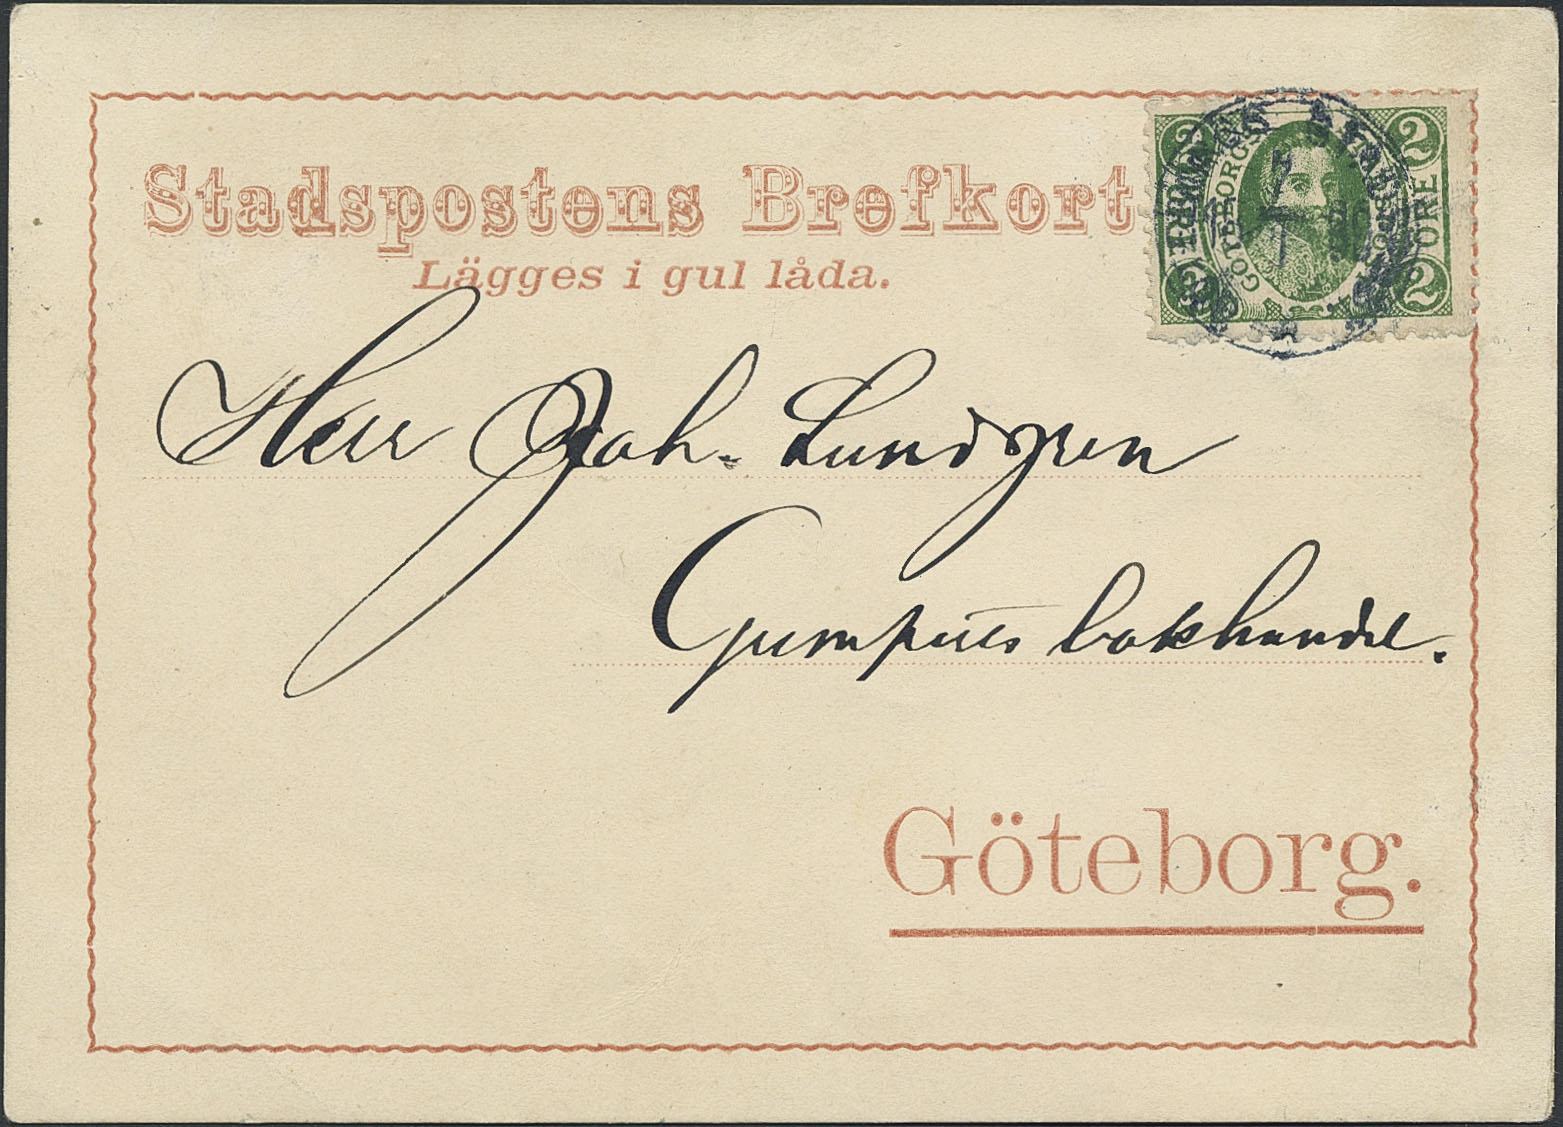 Stadspostens Brefkort
Lägges i gul låda.
2 2
GÖTEBORGS
ÖRE
2 2
Herr Joh. Lundgren
Gumperts bokhandel.
Göteborg.